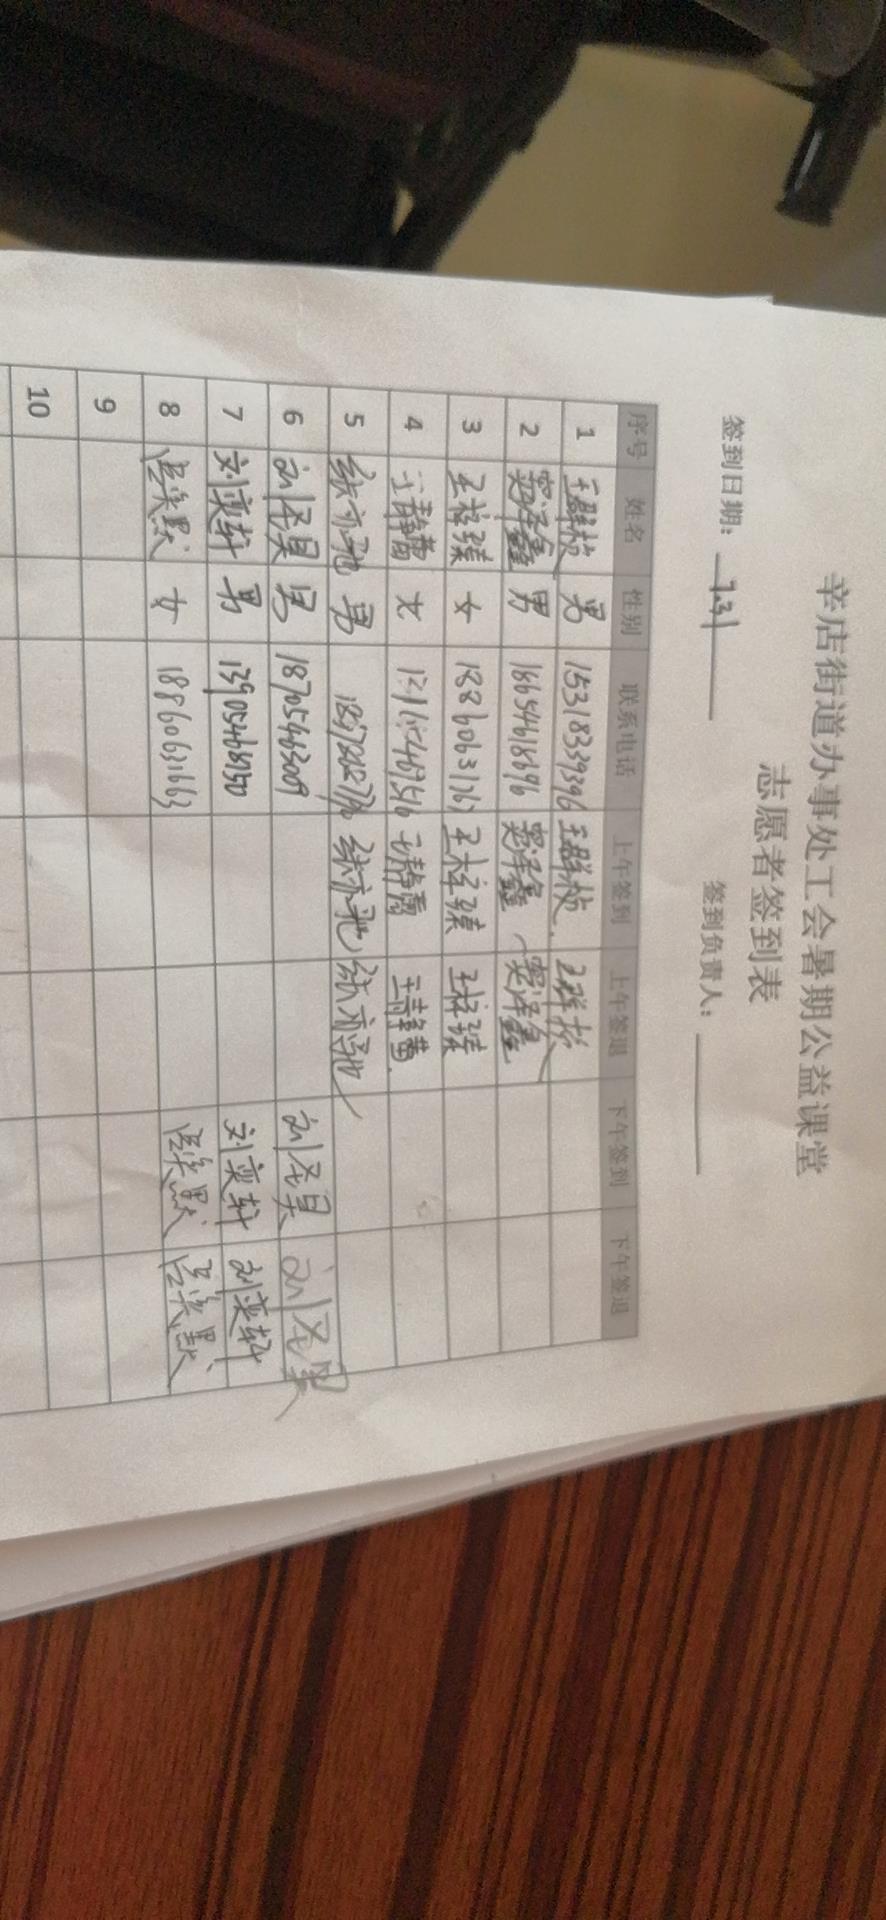 辛店街道办事处工会暑期公益课堂
志愿者签到表
签到日期: 7.31 签到负责人:
序号 姓名 性别 联系电话 上午签到 上午签退 下午签到 下午签退
1 王群 男 15318339396 王群 王群
2 窦泽鑫 男 18654618696 窦泽鑫 窦泽鑫
3 王梓瑛 女 18860631261 王梓瑛 王梓瑛
4 王静茜 女 王静茜 王静茜
5 张亦弛 男 张亦弛 张亦弛
6 刘圣昊 男 18705463009 刘圣昊 刘圣昊
7 刘奕轩 男 13905468750 刘奕轩 刘奕轩
8 笑默 女 18860631663 笑默 笑默
9
10